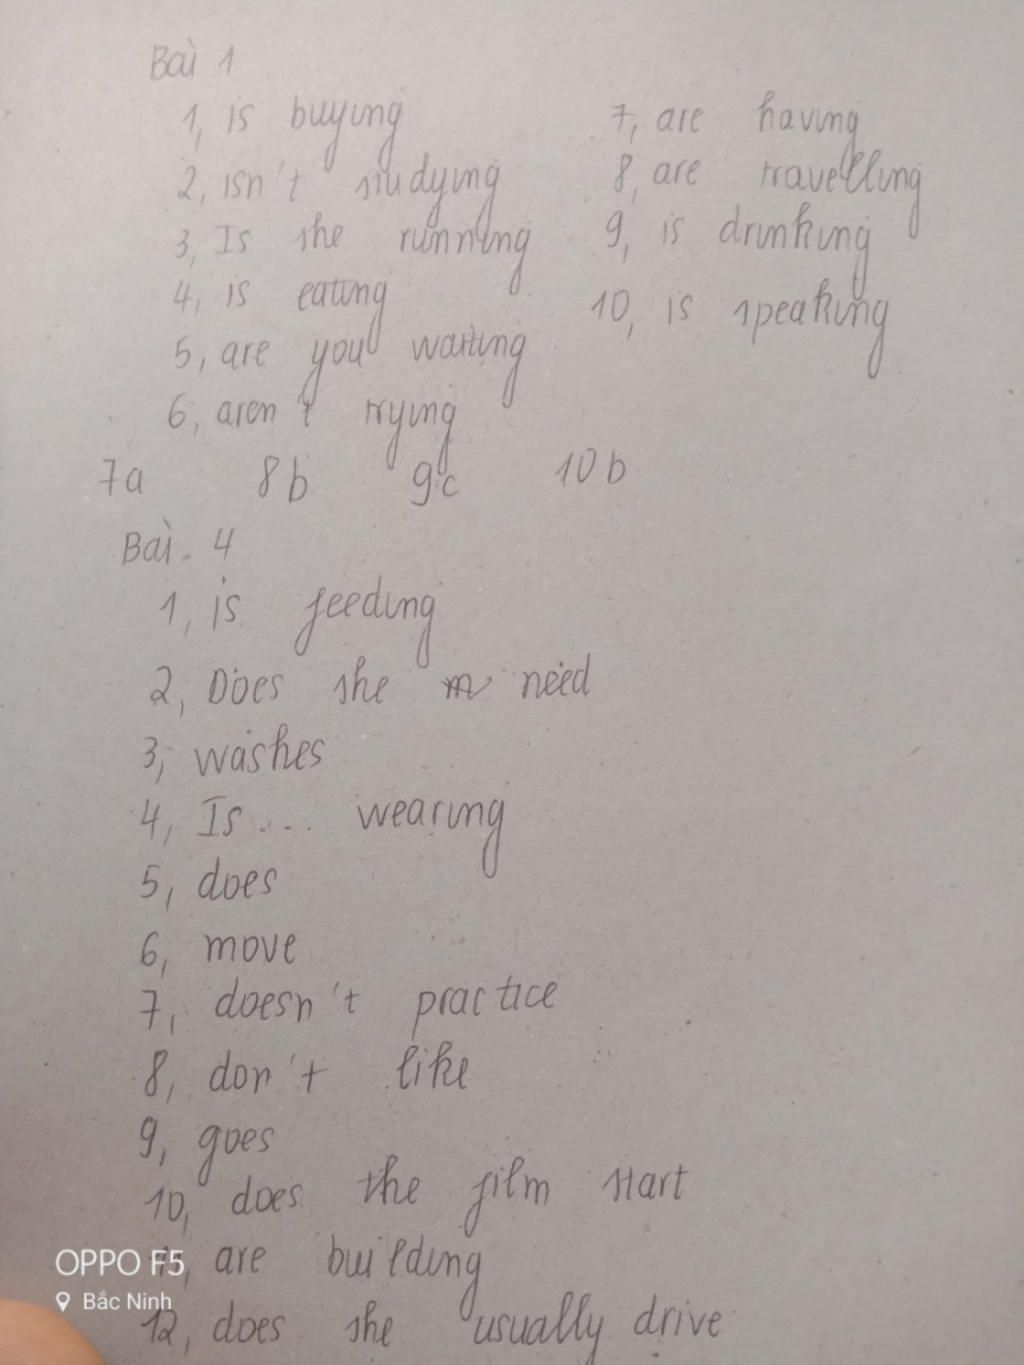 Bài 1
1, is buying
2, isn't studying
3, Is she running
4, is eating
5, are you waiting
6, aren't trying
7, are having
8, are travelling
9, is drinking
10, is speaking
7a 8b 9c 10b
Bài. 4
1, is feeding
2, Does she need
3, washes
4, Is... wearing
5, does
6, move
7, doesn't practice
8, don't like
9, goes
10, does the film start
11, are building
12, does she usually drive
OPPO F5
Bắc Ninh